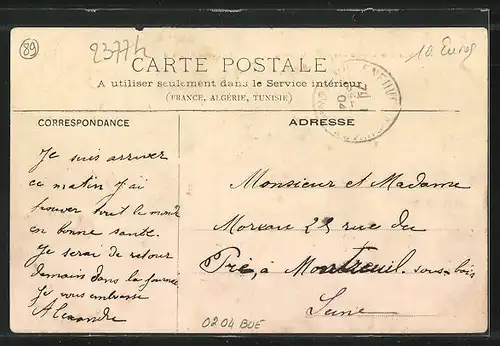 89
2377h
10 Euros
CARTE POSTALE
A utiliser seulement dans le Service intérieur
(FRANCE, ALGÉRIE, TUNISIE)
CORRESPONDANCE
ADRESSE
Je suis arriver
ce matin J'ai
trouver tout le monde
en bonne sante.
Je serai de retour
demain dans la journée
Je vous embrasse
Alexandre
Monsieur et Madame
Moreau 25 rue du
Pré, à Montreuil-sous-bois
Seine
0204 BUE